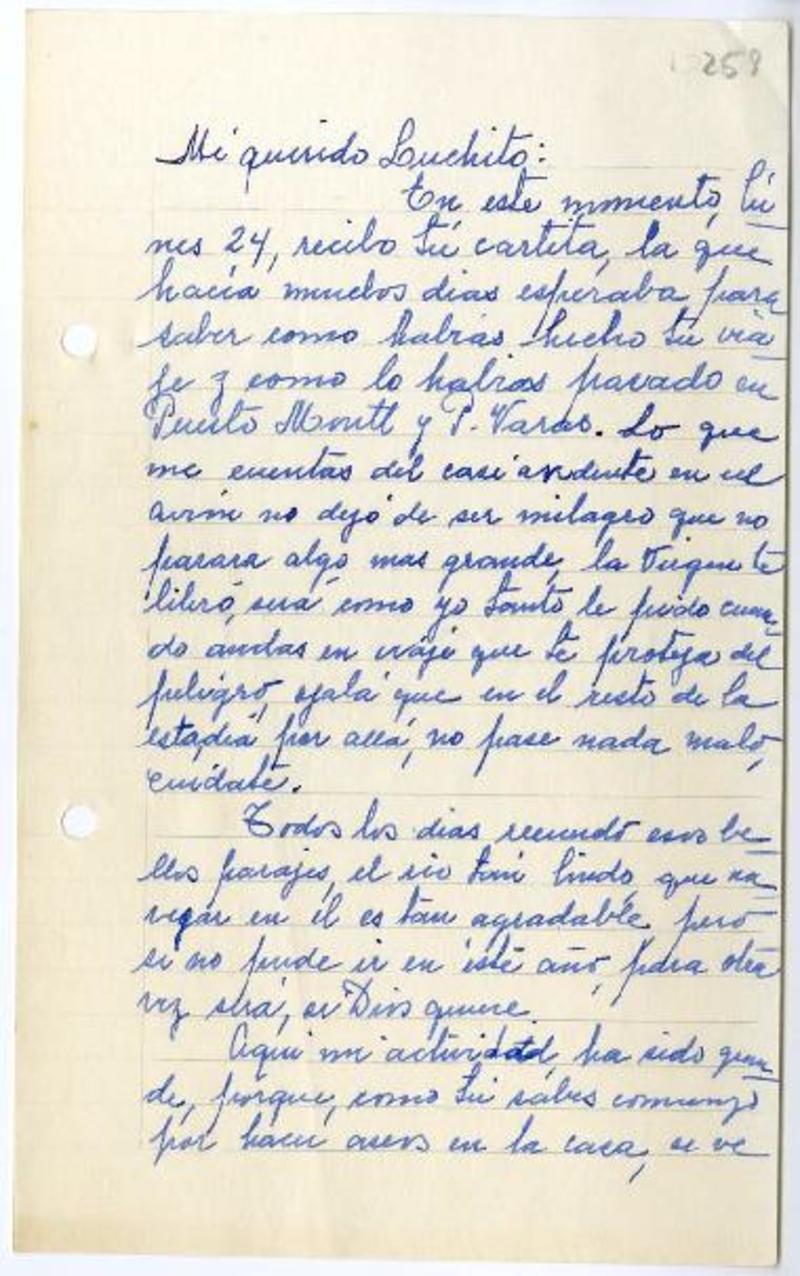 259
Mi querido Luchito:
En este momento, lú
nes 24, recibo tú cartita, la que
hacía muchos dias esperaba para
saber como habrás hecho tu via
je y como lo habias pasado en
Puerto Montt y P. Varas. Lo que
me cuentas del casi accidente en el
avión no dejó de ser milagro que no
pasara algo mas grande, la Virgen te
libró, será como yo tanto le pido cuan
do andas en viaje que te proteja del
peligro, ojalá que en el resto de la
estadía por allá, no pase nada malo,
cuidate.
Todos los dias recuerdo esos be
llos parajes, el rio tan lindo, que na
vegar en él es tan agradable pero
si no pude ir en éste año, para otra
vez será, si Dios quiere.
Aqui mi actividad, ha sido gran
de, porque, como tú sabes comienzo
por hacer aseos en la casa, se ve